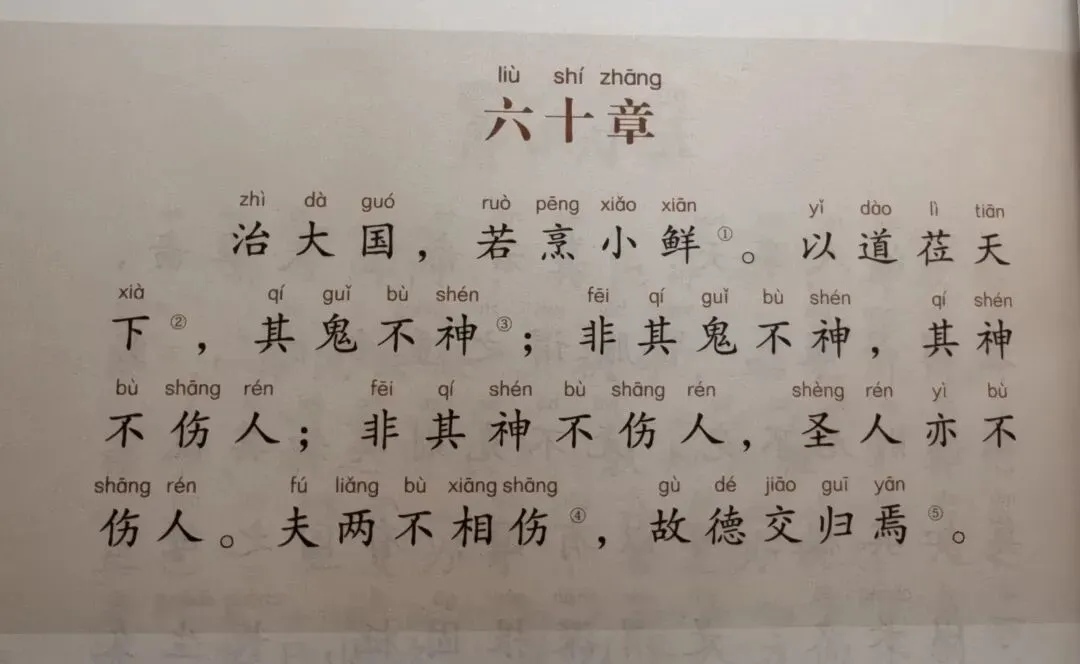 liù shí zhāng
六十章
zhì dà guó ruò pēng xiǎo xiān yǐ dào lì tiān
治大国，若烹小鲜①。以道莅天
xià qí guǐ bù shén fēi qí guǐ bù shén qí shén
下②，其鬼不神③；非其鬼不神，其神
bù shāng rén fēi qí shén bù shāng rén shèng rén yì bù
不伤人；非其神不伤人，圣人亦不
shāng rén fú liǎng bù xiāng shāng gù dé jiāo guī yān
伤人。夫两不相伤④，故德交归焉⑤。